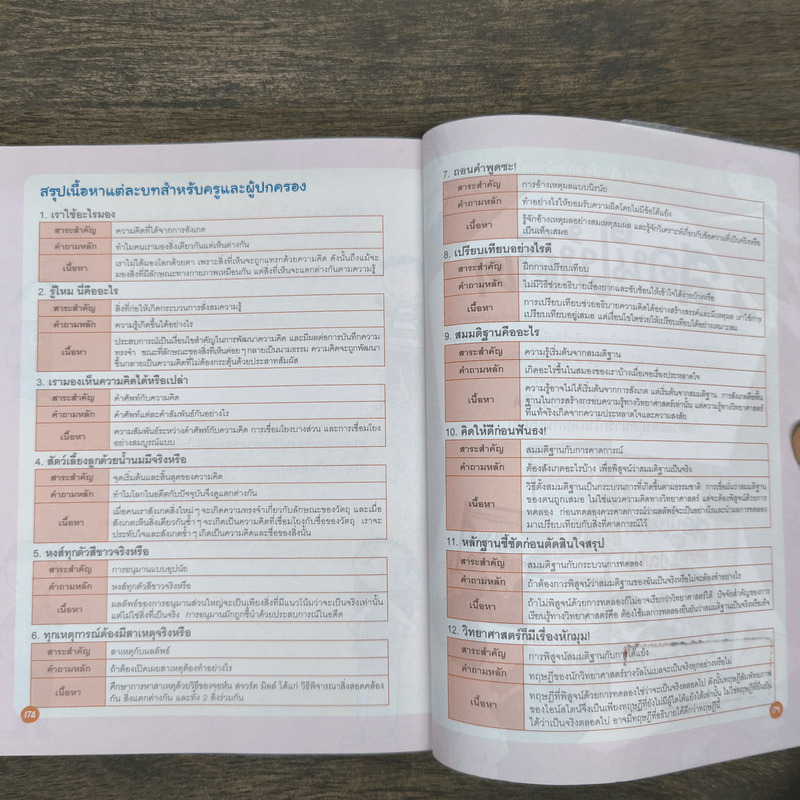 สรุปเนื้อหาแต่ละบทสำหรับครูและผู้ปกครอง
1. เราใช้อะไรมอง
สาระสำคัญ ความคิดที่ได้จากการสังเกต
คำถามหลัก ทำไมคนเรามองสิ่งเดียวกันแต่เห็นต่างกัน
เนื้อหา เราไม่ได้มองโลกด้วยตา เพราะสิ่งที่เห็นจะถูกแทรกด้วยความคิด ดังนั้นถึงแม้จะ
มองสิ่งที่มีลักษณะทางกายภาพเหมือนกัน แต่สิ่งที่เห็นจะแตกต่างกันตามความรู้
2. รู้ไหม นี่คืออะไร
สาระสำคัญ สิ่งที่ก่อให้เกิดกระบวนการสั่งสมความรู้
คำถามหลัก ความรู้เกิดขึ้นได้อย่างไร
เนื้อหา ประสบการณ์เป็นเงื่อนไขสำคัญในการพัฒนาความคิด และมีผลต่อการบันทึกความ
ทรงจำ ขณะที่ลักษณะของสิ่งที่เห็นค่อย ๆ กลายเป็นนามธรรม ความคิดจะถูกพัฒนา
ขึ้นกลายเป็นความคิดที่ไม่ต้องกระตุ้นด้วยประสาทสัมผัส
3. เรามองเห็นความคิดได้หรือเปล่า
สาระสำคัญ คำศัพท์กับความคิด
คำถามหลัก คำศัพท์แต่ละคำสัมพันธ์กันอย่างไร
เนื้อหา ความสัมพันธ์ระหว่างคำศัพท์กับความคิด การเชื่อมโยงบางส่วน และการเชื่อมโยง
อย่างสมบูรณ์แบบ
4. สัตว์เลี้ยงลูกด้วยน้ำนมมีจริงหรือ
สาระสำคัญ จุดเริ่มต้นและสิ้นสุดของความคิด
คำถามหลัก ทำไมโลกในอดีตกับปัจจุบันจึงดูแตกต่างกัน
เนื้อหา เมื่อคนเราสังเกตสิ่งใหม่ ๆ จะเกิดความทรงจำเกี่ยวกับลักษณะของวัตถุ และเมื่อ
สังเกตเห็นสิ่งเดียวกันซ้ำ ๆ จะเกิดเป็นความคิดที่เชื่อมโยงกับชื่อของวัตถุ เราจะ
ประทับใจและสังเกตซ้ำ ๆ เกิดเป็นความคิดและชื่อของสิ่งนั้น
5. หงส์ทุกตัวสีขาวจริงหรือ
สาระสำคัญ การอนุมานแบบอุปนัย
คำถามหลัก หงส์ทุกตัวสีขาวจริงหรือ
เนื้อหา ผลลัพธ์ของการอนุมานส่วนใหญ่จะเป็นเพียงสิ่งที่มีแนวโน้มว่าจะเป็นจริงเท่านั้น
แต่ไม่ใช่สิ่งที่เป็นจริง การอนุมานมักถูกชี้นำด้วยประสบการณ์ในอดีต
6. ทุกเหตุการณ์ต้องมีสาเหตุจริงหรือ
สาระสำคัญ สาเหตุกับผลลัพธ์
คำถามหลัก ถ้าต้องเปิดเผยสาเหตุต้องทำอย่างไร
เนื้อหา ศึกษาการหาสาเหตุด้วยวิธีของจอห์น สจวร์ต มิลล์ ได้แก่ วิธีพิจารณาสิ่งสอดคล้อง
กัน สิ่งแตกต่างกัน และทั้ง 2 สิ่งร่วมกัน
178
7. ถอนคำพูดซะ!
สาระสำคัญ การอ้างเหตุผลแบบนิรนัย
คำถามหลัก ทำอย่างไรให้ยอมรับความผิดโดยไม่มีข้อโต้แย้ง
เนื้อหา รู้จักอ้างเหตุผลอย่างสมเหตุสมผล และรู้จักวิเคราะห์เกี่ยวกับข้อความที่เป็นจริงหรือ
เป็นเท็จเสมอ
8. เปรียบเทียบอย่างไรดี
สาระสำคัญ ฝึกการเปรียบเทียบ
คำถามหลัก ไม่มีวิธีช่วยอธิบายเรื่องยากและซับซ้อนให้เข้าใจได้ง่ายบ้างหรือ
เนื้อหา การเปรียบเทียบช่วยอธิบายความคิดได้อย่างสร้างสรรค์และมีเหตุผล เราใช้การ
เปรียบเทียบอยู่เสมอ แต่เงื่อนไขใดช่วยให้เปรียบเทียบได้อย่างเหมาะสม
9. สมมติฐานคืออะไร
สาระสำคัญ ความรู้เริ่มต้นจากสมมติฐาน
คำถามหลัก เกิดอะไรขึ้นในสมองของเราบ้างเมื่อเจอเรื่องประหลาดใจ
เนื้อหา ความรู้อาจไม่ได้เริ่มต้นจากการสังเกต แต่เริ่มต้นจากสมมติฐาน การสังเกตคือพื้น
ฐานในการสร้างกรอบความรู้ทางวิทยาศาสตร์เท่านั้น แต่ความรู้ทางวิทยาศาสตร์
ที่แท้จริงเกิดจากความประหลาดใจและความสงสัย
10. คิดให้ดีก่อนฟันธง!
สาระสำคัญ สมมติฐานกับการคาดการณ์
คำถามหลัก ต้องสังเกตอะไรบ้าง เพื่อพิสูจน์ว่าสมมติฐานเป็นจริง
เนื้อหา วิธีตั้งสมมติฐานเป็นกระบวนการที่เกิดขึ้นตามธรรมชาติ การเชื่อมั่นว่าสมมติฐาน
ของตนถูกเสมอ ไม่ใช่แนวความคิดทางวิทยาศาสตร์ แต่จะต้องพิสูจน์ด้วยการ
ทดลอง ก่อนทดลองควรคาดการณ์ว่าผลลัพธ์จะเป็นอย่างไรและนำผลการทดลอง
มาเปรียบเทียบกับสิ่งที่คาดการณ์ไว้
11. หลักฐานชี้ชัดก่อนตัดสินใจสรุป
สาระสำคัญ สมมติฐานกับกระบวนการทดลอง
คำถามหลัก ถ้าต้องการพิสูจน์ว่าสมมติฐานของฉันเป็นจริงหรือไม่จะต้องทำอย่างไร
เนื้อหา ถ้าไม่พิสูจน์ด้วยการทดลองก็ไม่อาจเรียกว่าวิทยาศาสตร์ได้ ปัจจัยสำคัญของการ
เรียนรู้ทางวิทยาศาสตร์คือ ต้องใช้ผลการทดลองยืนยันว่าสมมติฐานเป็นจริงหรือเท็จ
12. วิทยาศาสตร์ก็มีเรื่องหักมุม!
สาระสำคัญ การพิสูจน์สมมติฐานกับการโต้แย้ง
คำถามหลัก ทฤษฎีของนักวิทยาศาสตร์รางวัลโนเบลจะเป็นจริงทุกอย่างหรือไม่
เนื้อหา ทฤษฎีที่พิสูจน์ด้วยการทดลองใช่ว่าจะเป็นจริงตลอดไป ดังนั้นทฤษฎีสัมพัทธภาพ
ของไอน์สไตน์จึงเป็นเพียงทฤษฎีที่ยังไม่มีผู้ใดโต้แย้งได้เท่านั้น ไม่ใช่ทฤษฎีที่ยืนยัน
ได้ว่าเป็นจริงตลอดไป อาจมีทฤษฎีที่อธิบายได้ดีกว่าทฤษฎีนี้
179